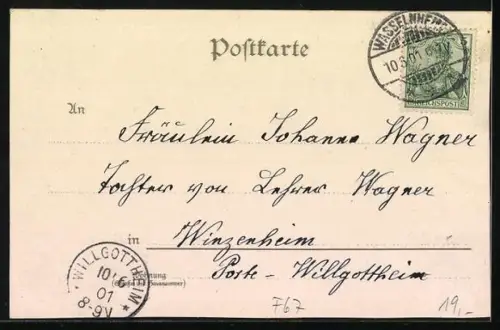 Postkarte
WASSELNHEIM
10.6.01
REICHSPOST
An
Fräulein Johanna Wagner
Tochter von Lehrer Wagner
in Winzenheim
Poste - Willgottheim
WILLGOTTHEIM *
10/6
01
8-9V
F67
19,-